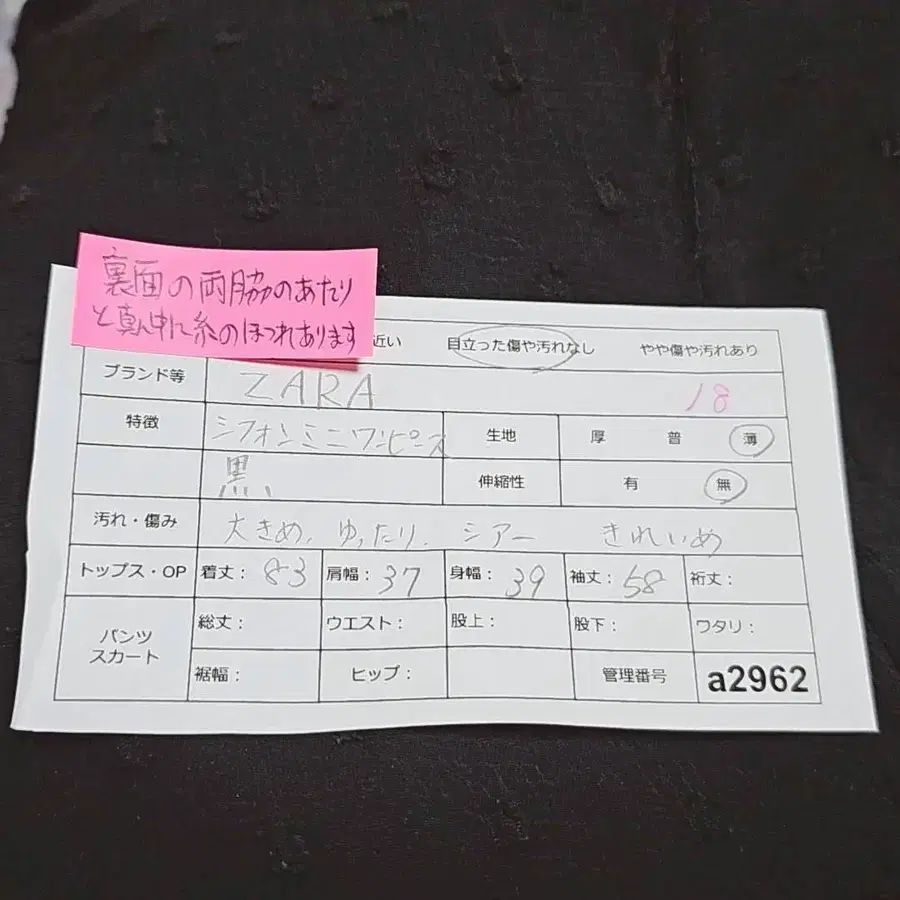 裏面の両脇のあたり
と真ん中に糸のほつれあります
近い 目立った傷や汚れなし やや傷や汚れあり
ブランド等 ZARA 18
特徴 シフォンミニワンピース 生地 厚 普 薄
黒、 伸縮性 有 無
汚れ・傷み 大きめ、ゆったり、シアー きれいめ
トップス・OP 着丈: 83 肩幅: 37 身幅: 39 袖丈: 58 裄丈:
パンツ スカート 総丈: ウエスト: 股上: 股下: ワタリ:
裾幅: ヒップ: 管理番号 a2962